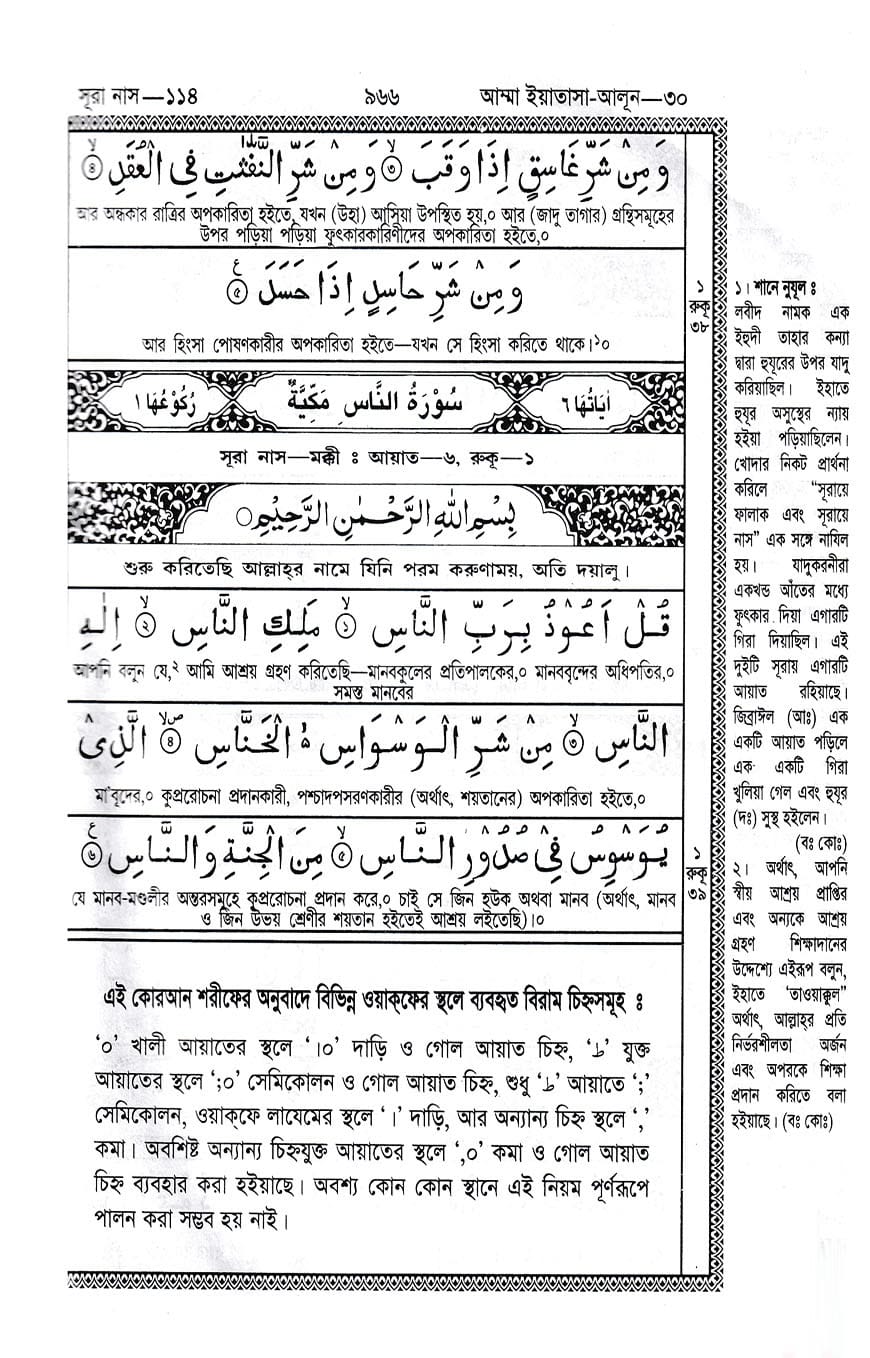 সূরা নাস—১১৪ ৯৬৬ আম্মা ইয়াতাসা-আলূন—৩০
وَمِنْ شَرِّ غَاسِقٍ اِذَا وَقَبَ ۙ﴿۳﴾ وَمِنْ شَرِّ النَّفّٰثٰتِ فِی الْعُقَدِ ۙ﴿۴﴾
আর অন্ধকার রাত্রির অপকারিতা হইতে, যখন (উহা) আসিয়া উপস্থিত হয়,০ আর (জাদু তাগার) গ্রন্থিসমূহের
উপর পড়িয়া পড়িয়া ফুৎকারকারিণীদের অপকারিতা হইতে,০
وَمِنْ شَرِّ حَاسِدٍ اِذَا حَسَدَ ﴿۵﴾ ع
আর হিংসা পোষণকারীর অপকারিতা হইতে—যখন সে হিংসা করিতে থাকে।১০
১
রুকূ
৩৮
اٰيَاتُهَا ٦ سُوْرَةُ النَّاسِ مَكِّيَّةٌ رُكُوْعُهَا ١
সূরা নাস—মক্কী ঃ আয়াত—৬, রুকূ—১
بِسْمِ اللّٰهِ الرَّحْمٰنِ الرَّحِيْمِ ○
শুরু করিতেছি আল্লাহ্‌র নামে যিনি পরম করুণাময়, অতি দয়ালু।
قُلْ اَعُوْذُ بِرَبِّ النَّاسِ ۙ﴿۱﴾ مَلِكِ النَّاسِ ۙ﴿۲﴾ اِلٰهِ
আপনি বলুন যে,২ আমি আশ্রয় গ্রহণ করিতেছি—মানবকুলের প্রতিপালকের,০ মানববৃন্দের অধিপতির,০
সমস্ত মানবের
النَّاسِ ۙ﴿۳﴾ مِنْ شَرِّ الْوَسْوَاسِ ۙ الْخَنَّاسِ ۙ﴿۴﴾ الَّذِیْ
মা'বূদের,০ কুপ্ররোচনা প্রদানকারী, পশ্চাদপসরণকারীর (অর্থাৎ, শয়তানের) অপকারিতা হইতে,০
يُوَسْوِسُ فِیْ صُدُوْرِ النَّاسِ ۙ﴿۵﴾ مِنَ الْجِنَّةِ وَالنَّاسِ ﴿۶﴾ ع
যে মানব-মণ্ডলীর অন্তরসমূহে কুপ্ররোচনা প্রদান করে,০ চাই সে জিন হউক অথবা মানব (অর্থাৎ, মানব
ও জিন উভয় শ্রেণীর শয়তান হইতেই আশ্রয় লইতেছি)।০
১
রুকূ
৩৯
এই কোরআন শরীফের অনুবাদে বিভিন্ন ওয়াক্‌ফের স্থলে ব্যবহৃত বিরাম চিহ্নসমূহ ঃ
‘০’ খালী আয়াতের স্থলে ‘।০’ দাড়ি ও গোল আয়াত চিহ্ন, ‘ط’ যুক্ত
আয়াতের স্থলে ‘;০’ সেমিকোলন ও গোল আয়াত চিহ্ন, শুধু ‘ط’ আয়াতে ‘;’
সেমিকোলন, ওয়াক্‌ফে লাযেমের স্থলে ‘।’ দাড়ি, আর অন্যান্য চিহ্ন স্থলে ‘,’
কমা। অবশিষ্ট অন্যান্য চিহ্নযুক্ত আয়াতের স্থলে ‘,০’ কমা ও গোল আয়াত
চিহ্ন ব্যবহার করা হইয়াছে। অবশ্য কোন কোন স্থানে এই নিয়ম পূর্ণরূপে
পালন করা সম্ভব হয় নাই।
১। শানে নুযূল ঃ
লবীদ নামক এক
ইহুদী তাহার কন্যা
দ্বারা হুযূরের উপর যাদু
করিয়াছিল। ইহাতে
হুযূর অসুস্থের ন্যায়
হইয়া পড়িয়াছিলেন।
খোদার নিকট প্রার্থনা
করিলে “সূরায়ে
ফালাক এবং সূরায়ে
নাস” এক সঙ্গে নাযিল
হয়। যাদুকরনীরা
একখন্ড আঁতের মধ্যে
ফুৎকার দিয়া এগারটি
গিরা দিয়াছিল। এই
দুইটি সূরায় এগারটি
আয়াত রহিয়াছে।
জিব্রাঈল (আঃ) এক
একটি আয়াত পড়িলে
এক একটি গিরা
খুলিয়া গেল এবং হুযূর
(দঃ) সুস্থ হইলেন।
(বঃ কোঃ)
২। অর্থাৎ, আপনি
স্বীয় আশ্রয় প্রাপ্তির
এবং অন্যকে আশ্রয়
গ্রহণ শিক্ষাদানের
উদ্দেশ্যে এইরূপ বলুন,
ইহাতে ‘তাওয়াক্কুল”
অর্থাৎ, আল্লাহ্‌র প্রতি
নির্ভরশীলতা অর্জন
এবং অপরকে শিক্ষা
প্রদান করিতে বলা
হইয়াছে। (বঃ কোঃ)